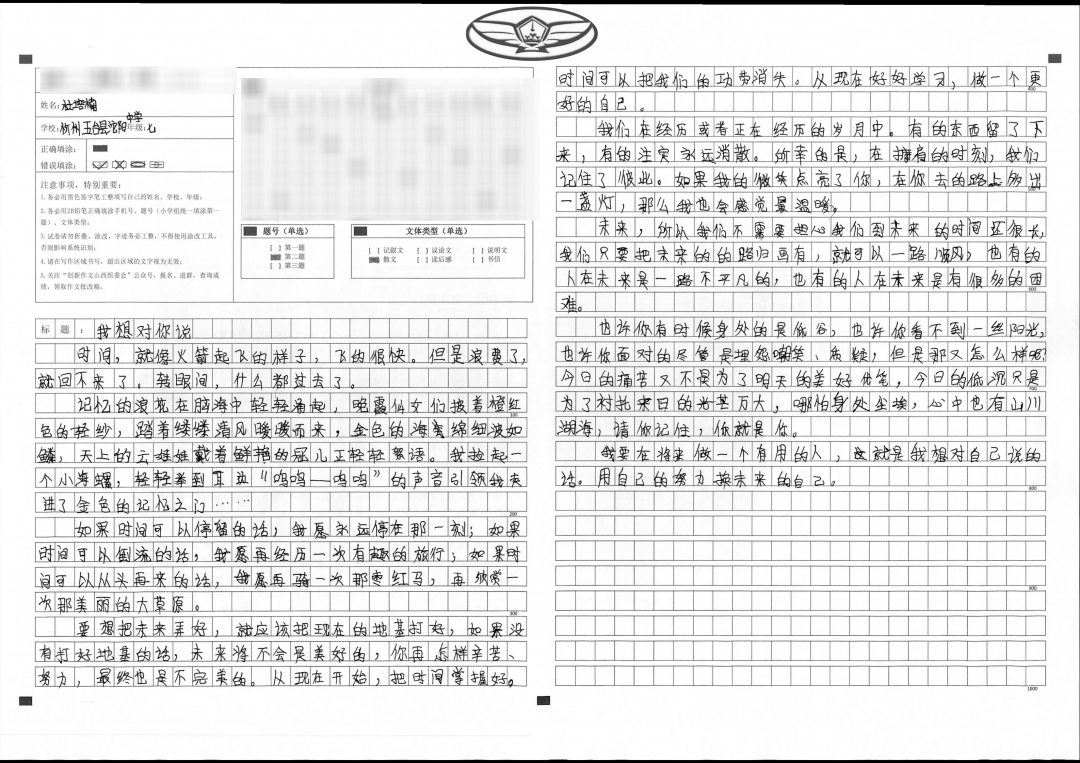 姓名：
学校：忻州五台县沱阳中学 年级：七
正确填涂：
错误填涂：
注意事项，特别重要：
1.务必用黑色签字笔工整填写自己的姓名、学校、年级；
2.务必用2B铅笔正确填涂手机号、题号（小学组统一填涂第一
题）、文体类型；
3.试卷请勿折叠、涂改，字迹务必工整，不得使用涂改工具，
否则影响系统识别；
4.请在写作区域书写，超出区域的文字视为无效；
4.关注“创新作文山西组委会”公众号，报名、进群、查询成
绩，领取作文批改稿。
题号（单选）
[ ] 第一题
第二题
[ ] 第三题
文体类型（单选）
[ ] 记叙文 [ ] 议论文 [ ] 说明文
散文 [ ] 读后感 [ ] 书信
标 题：我想对你说
时间，就像火箭起飞的样子，飞的很快。但是浪费了，
就回不来了。转眼间，什么都过去了。
记忆的浪花在脑海中轻轻涌起，晚霞仙女们披着橙红
100
色的轻纱，踏着缕缕清风暖暖而来，金色的海绵细波如
鳞，天上的云娃娃戴着鲜艳的冠儿正轻轻絮语。我捡起一
个小海螺，轻轻举到耳边“呜呜—呜呜”的声音引领我夹
进了金色的记忆之门……
200
如果时间可以停留的话，我愿永远停在那一刻；如果
时间可以倒流的话，我愿再经历一次有趣的旅行；如果时
间可以从头再来的话，我愿再骑一次那枣红马，再欣赏一
次那美丽的大草原。
300
要想把未来弄好，就应该把现在的地基打好，如果没
有打好地基的话，未来将不会是美好的，你再怎样辛苦、
努力，最终也是不完美的。从现在开始，把时间掌握好。
时间可以把我们的功劳消失。从现在好好学习，做一个更
400
好的自己。
我们在经历或者正在经历的岁月中。有的东西留了下
来，有的注定永远消散。所幸的是，在擁肩的时刻，我们
记住了彼此。如果我的微笑点亮了你，在你去的路上多出
500
一盏灯，那么我也会感觉最温暖。
未来，所以我们不需要担心我们到未来的时间还很长，
我们只要把未来的的路归画有，就可以一路顺风，也有的
人在未来是一路不平凡的，也有的人在未来是有很多的困
600
难。
也许你有时候身处的是低谷，也许你看不到一丝阳光，
也许你面对的尽管是埋怨嘲笑、质疑，但是那又怎么样呢？
今日的痛苦又不是为了明天的美好伏笔，今日的低沉只是
700
为了衬托来日的光芒万丈，哪怕身处尘埃，心中也有山川
湖海，请你记住，你就是你。
我要在将来做一个有用的人，这就是我想对自己说的
话。用自己的努力换未来的自己。
800
900
1000